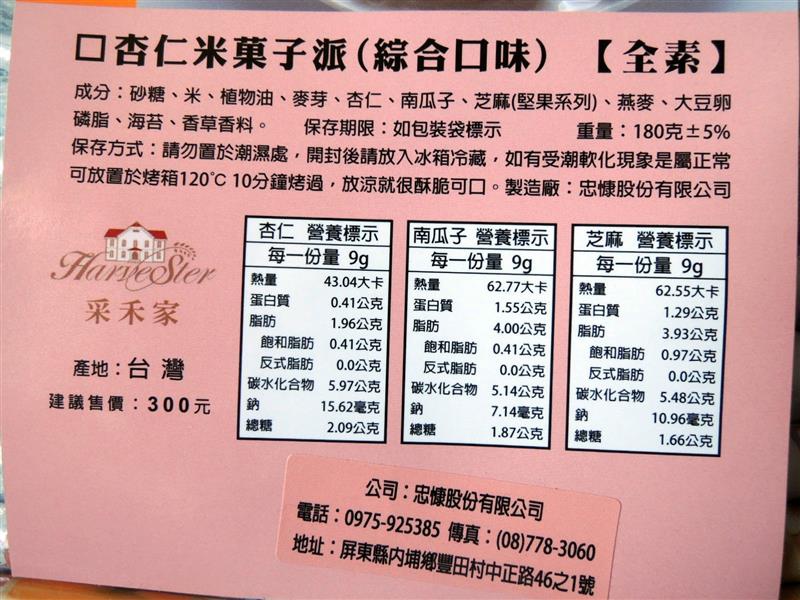 口杏仁米菓子派(綜合口味) 【全素】
成分：砂糖、米、植物油、麥芽、杏仁、南瓜子、芝麻(堅果系列)、燕麥、大豆卵
磷脂、海苔、香草香料。 保存期限：如包裝袋標示 重量：180克±5%
保存方式：請勿置於潮濕處，開封後請放入冰箱冷藏，如有受潮軟化現象是屬正常
可放置於烤箱120℃ 10分鐘烤過，放涼就很酥脆可口。製造廠：忠慷股份有限公司
HarveSter
采禾家
產地：台灣
建議售價：300元
杏仁 營養標示
每一份量 9g
熱量 43.04大卡
蛋白質 0.41公克
脂肪 1.96公克
飽和脂肪 0.41公克
反式脂肪 0.0公克
碳水化合物 5.97公克
鈉 15.62毫克
總糖 2.09公克
南瓜子 營養標示
每一份量 9g
熱量 62.77大卡
蛋白質 1.55公克
脂肪 4.00公克
飽和脂肪 0.41公克
反式脂肪 0.0公克
碳水化合物 5.14公克
鈉 7.14毫克
總糖 1.87公克
芝麻 營養標示
每一份量 9g
熱量 62.55大卡
蛋白質 1.29公克
脂肪 3.93公克
飽和脂肪 0.97公克
反式脂肪 0.0公克
碳水化合物 5.48公克
鈉 10.96毫克
總糖 1.66公克
公司：忠慷股份有限公司
電話：0975-925385 傳真：(08)778-3060
地址：屏東縣内埔鄉豐田村中正路46之1號